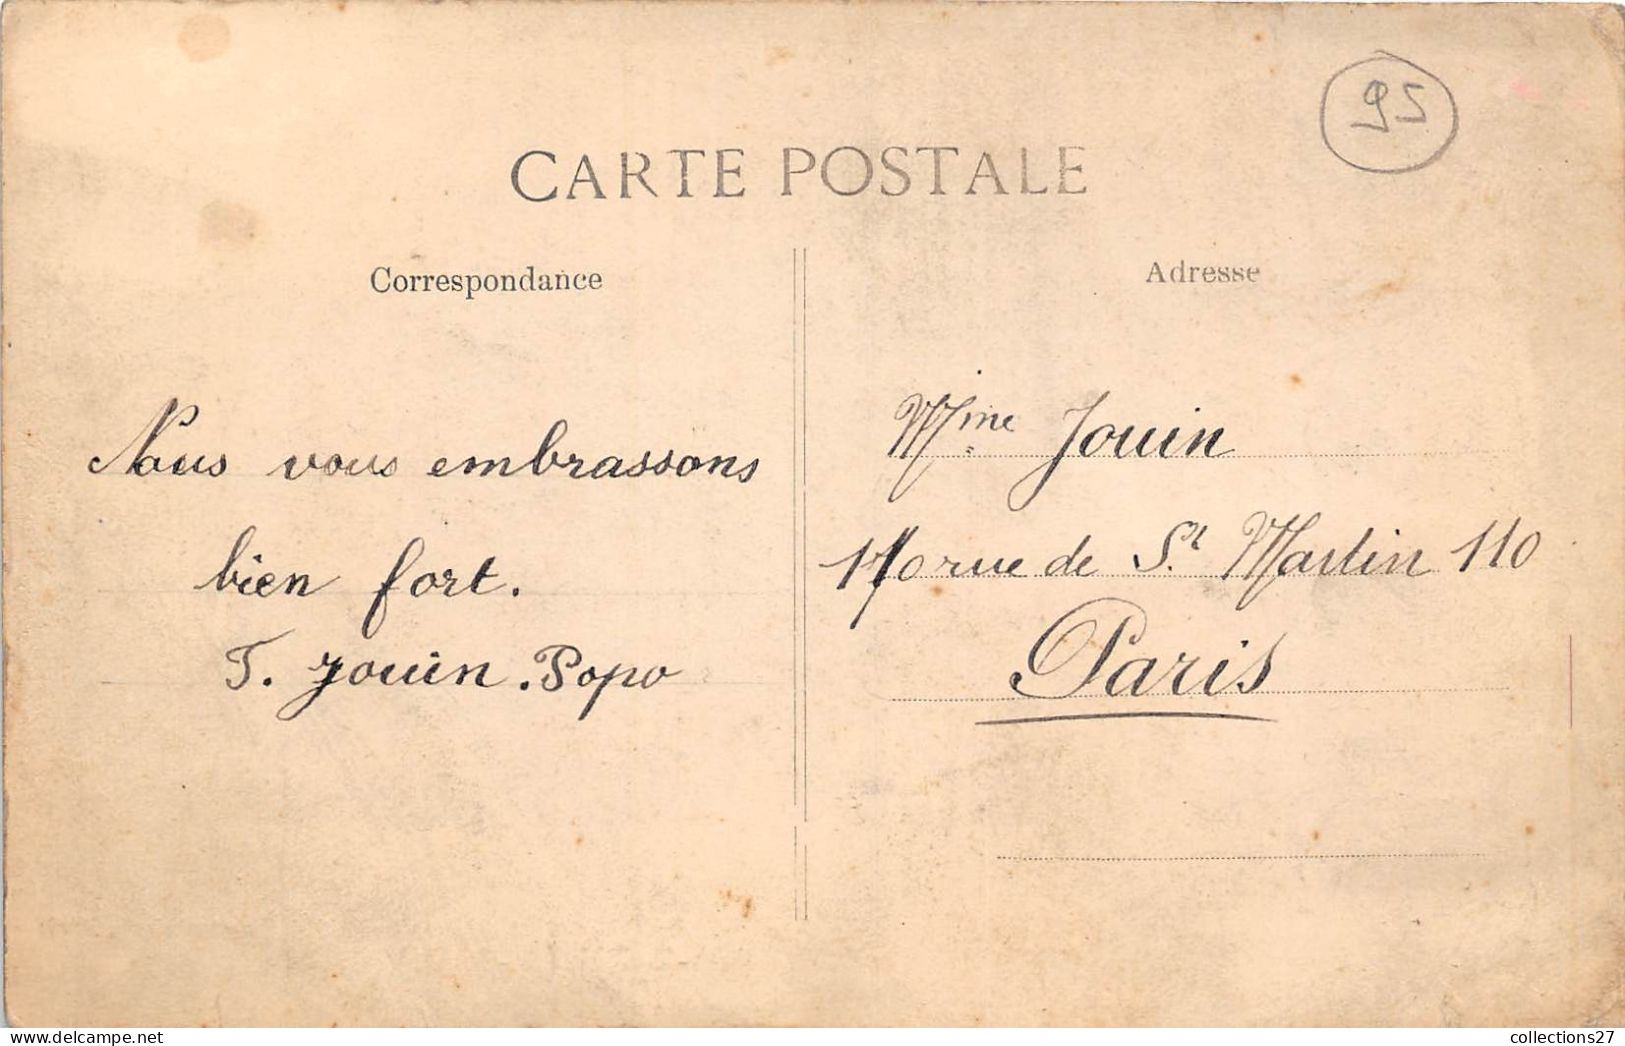 95
CARTE POSTALE
Correspondance
Nous vous embrassons
bien fort.
T. Jouin. Popo
Adresse
Mme Jouin
110 rue de St Martin 110
Paris
collections27